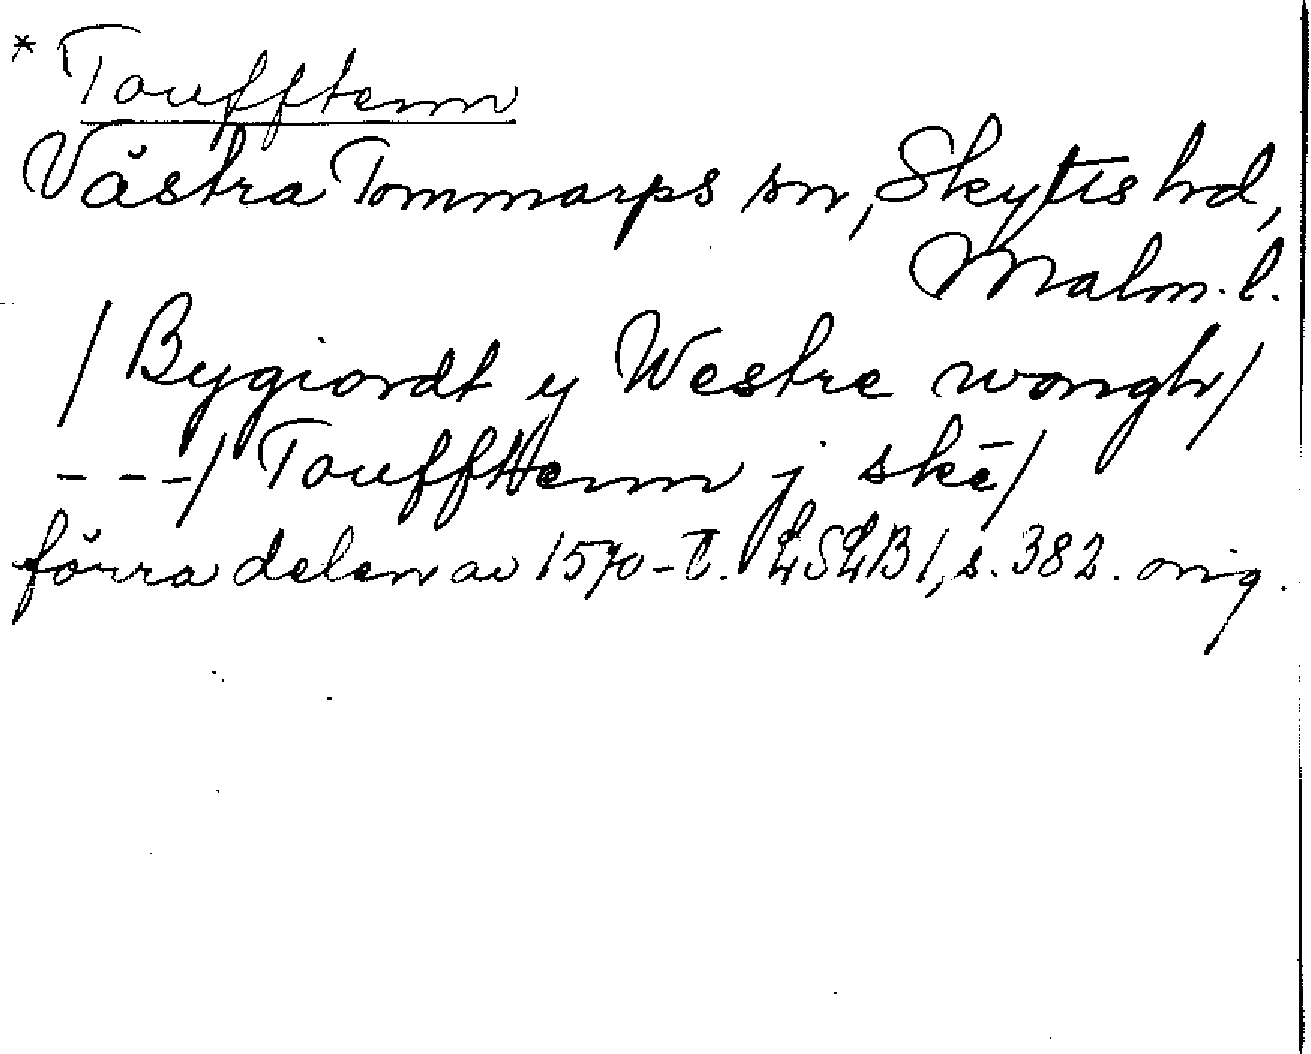 * Toufftenn
Västra Tommarps sn, Skytts hrd,
Malm.l.
/ Bygiordt y Westre wongh/
---/ Toufftenn j skē/
förra delen av 1570-t. LSLB1, s. 382. orig.